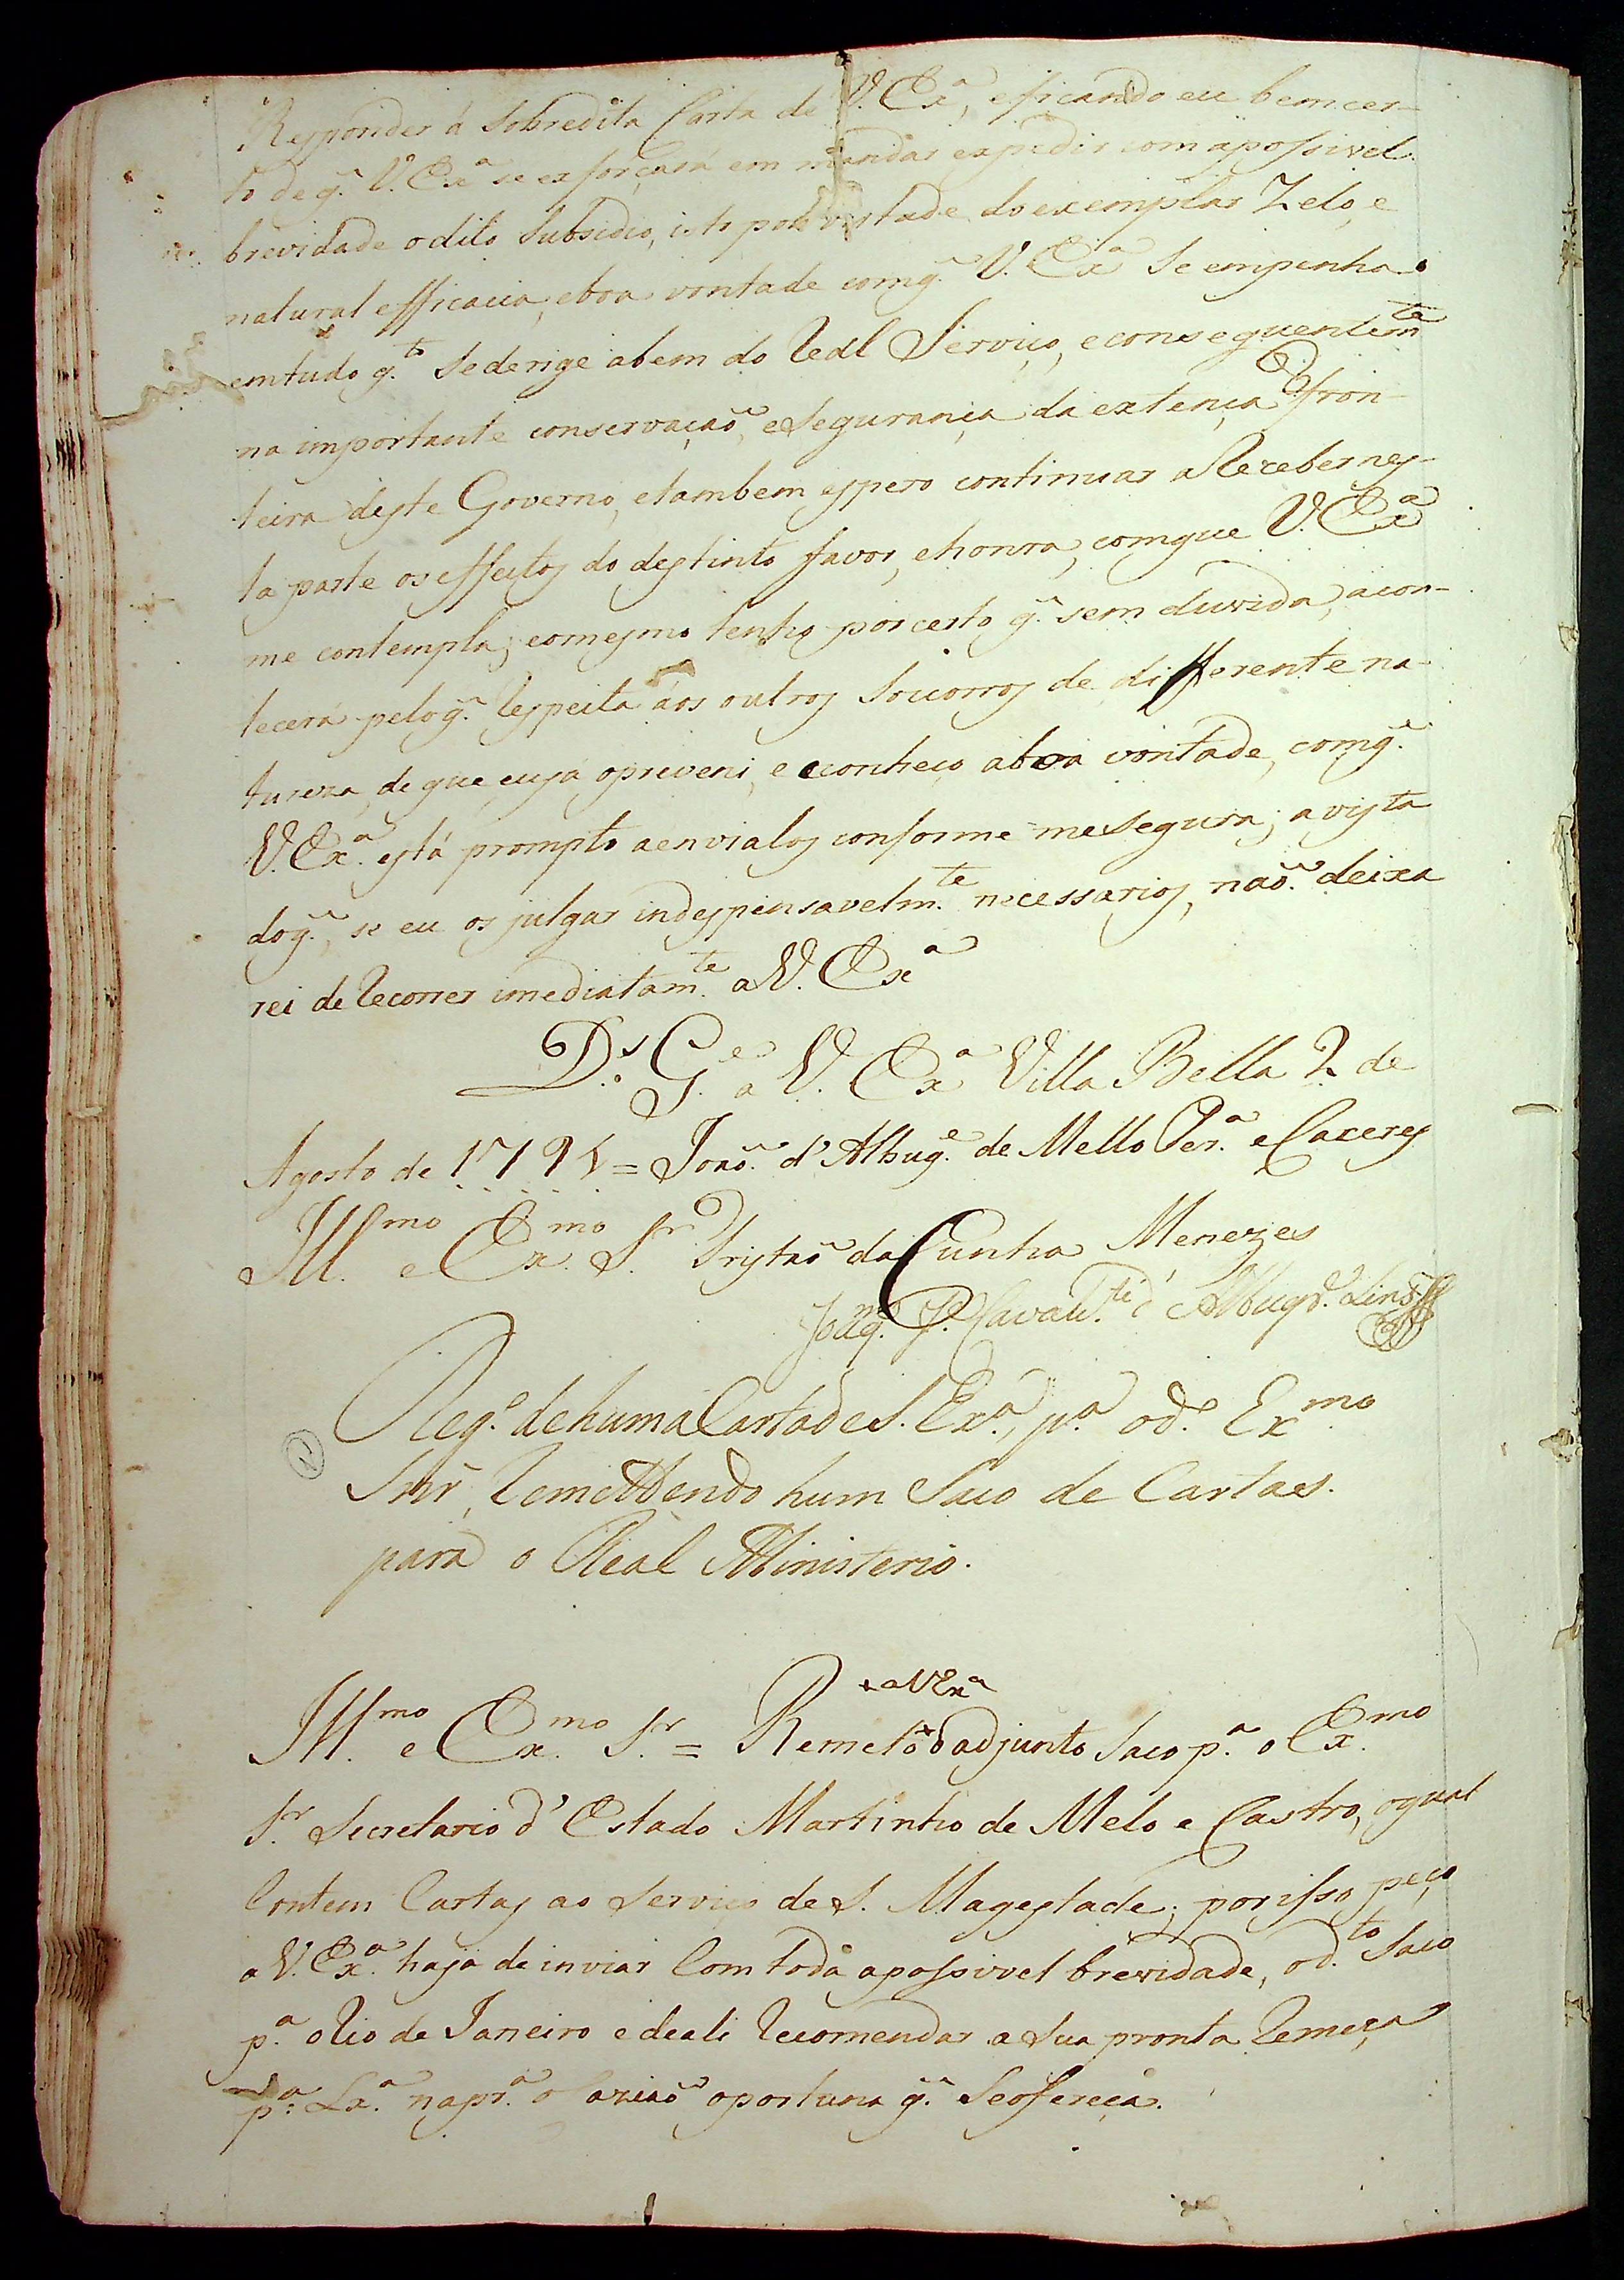 Responder á Sobredita Carta de V. Exª, eficando eu bemcer-
to de q̃. V. Exª se exforçará em mandar expedir com apossivel
brevidade odito Subsidio, isto por vertude do exemplar Zelo, e
natural efficacia, eboa vontade comq̃. V. Exª Se empenha
emtudo q.to Sederige abem do Real Serviço, econseguentem.te
na importante conservaçaõ, eSegurança da extença Fron-
teira deste Governo, etambem espero continuar aReceber nes-
ta parte os effeitos do destinto favor, ehonra, comque V. Exª
me contempla; eomesmo tenho porcerto q̃. sem duvida, acon-
tecerá peloq̃. Respeita áos outros Socorros de differente na-
tureza, de que eujá opreveni, e conheço aboa vontade, comq̃.
V. Exª. está prompto aenvialos conforme mesegura; avista
doq̃., se eu os julgar indespensavelm.te necessarios, naõ. deixa
rei de Recorrer imediatam.te a V. Exª
D.s G.e a V. Exª Villa Bella 2 de
Agosto de 1791 = Joaõ. d'Albuq.e de Mello Per.ª e Caceres
Ill.mo e Ex.mo S.r Tristaõ da Cunha Menezes
Joaq.m J.e Cavalc.ti d'Albuqr.e Lins
Reg.º dehuma Carta de S. Exª, p.ª od.º Ex.mo
Snr, Remettendo hum Saco de Cartas.
para o Real Ministerio.
+ a V Exª
Ill.mo e Ex.mo S.r = Remeto o adjunto Saco p.ª o Ex.mo
S.r Secretario d'Estado Martinho de Melo e Castro, oqual
Contem Cartas ao Serviço de S. Magestade; porisso peço
a V. Exª. haja de inviar Com toda apossivel brevidade, od.to Saco
p.ª oRio de Janeiro edeali Recomendar a Sua pronta Remeça
p.ª Lx.ª napr.ª ocaziaõ oportuna q̃. Seofereça.